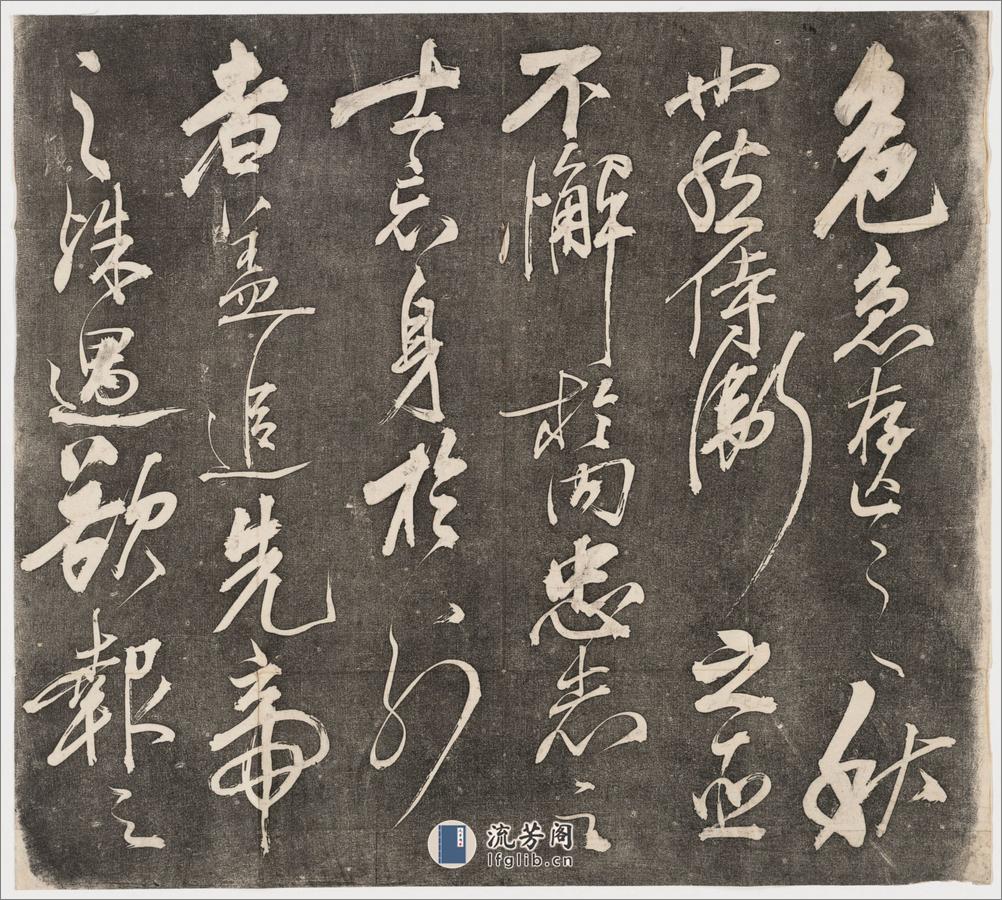 危急存亡之秋
也然侍衛之臣
不懈於内忠志之
士忘身於外
者蓋追先帝
之殊遇欲報之
流芳阁
lfglib.cn